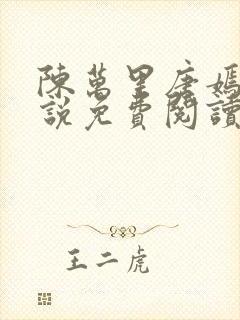 陳萬里唐嫣
說免費閱讀
王二虎